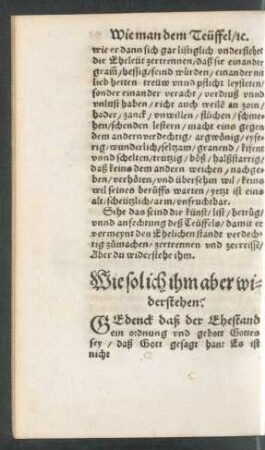 Wie man dem Teüffel/ıc.
wie er dann sich gar listiglich vnderstehet
die Eheleüt zertrennen/daß sie einander
gram/hessig/feind würden/einander nit
lieb hetten/treüw vnnd pflicht leysteten/
sonder einander veracht/verdruß vnnd
vnlust haben/richt auch weile an zorn/
hader/zanck/vnwillen/flüchen/schme-
hen/schenden lestern/macht eins gegen
dem andern verdechtig/argwönig/eyfe-
rig/wunderlich/seltzam/granend/kifent
vnnd schelten/trutzig/böß/halßstarrig/
daß keins dem andern weichen/nachge-
ben/verhören/vnd übersehen wil/keins
wil seines berüffs warten/yetzt ist eins
alt/scheützlich/arm/unfruchtbar.
Sihe das seind die künst/list/betrüg/
vnnd anfechtung deß Teüffels/damit er
vermeynt den Ehelichen standt verdech-
tig zůmachen/zertrennen vnd zerreissē/
Aber du widerstehe ihm.
Wie sol ich ihm aber wi-
derstehen?
GEdenck daß der Ehestand
ein ordnung vnd gebott Gottes
sey/daß Gott gesagt hat: Es ist
nicht